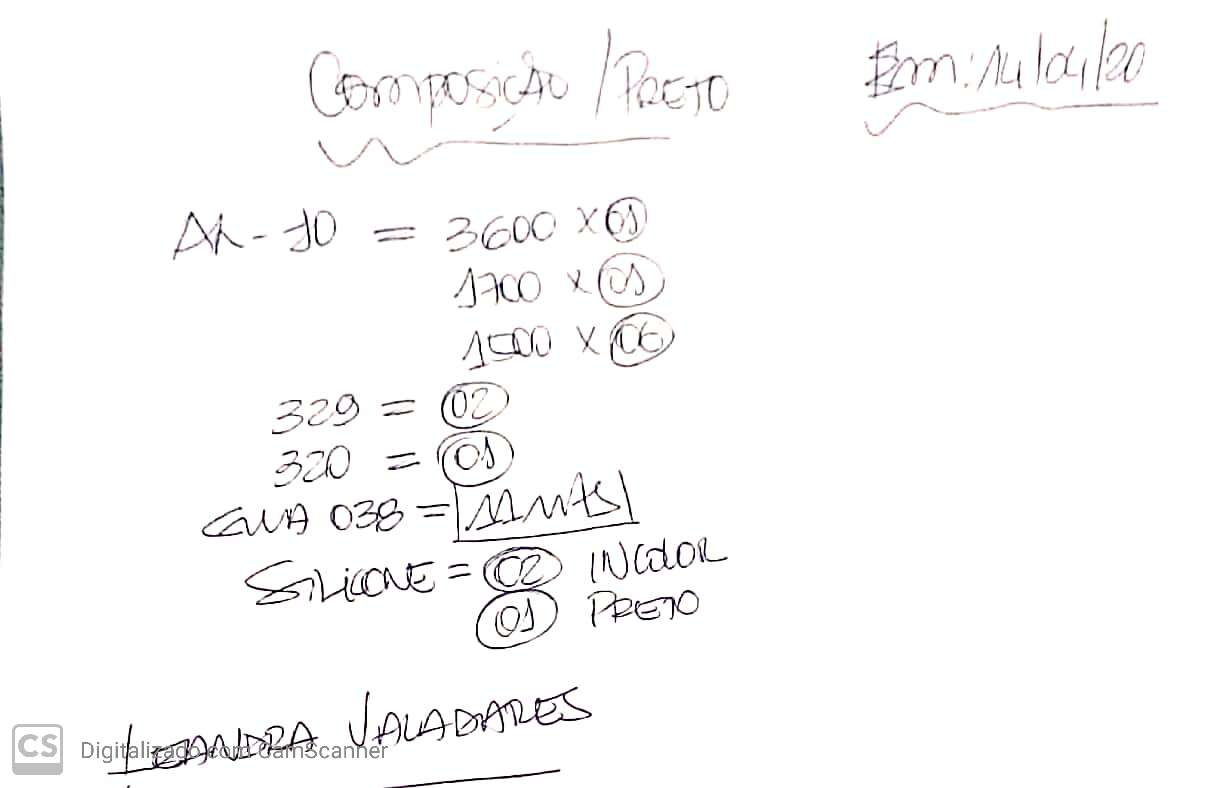 Composição / PRETO
Em: 14/04/20
= 3600 x 01
1700 x 01
1500 x 06
329 = 02
320 = 01
GUIA 038 =
SILICONE = 02 INCOLOR
01 PRETO
LEANDRA VALADARES
CS Digitalizado com CamScanner